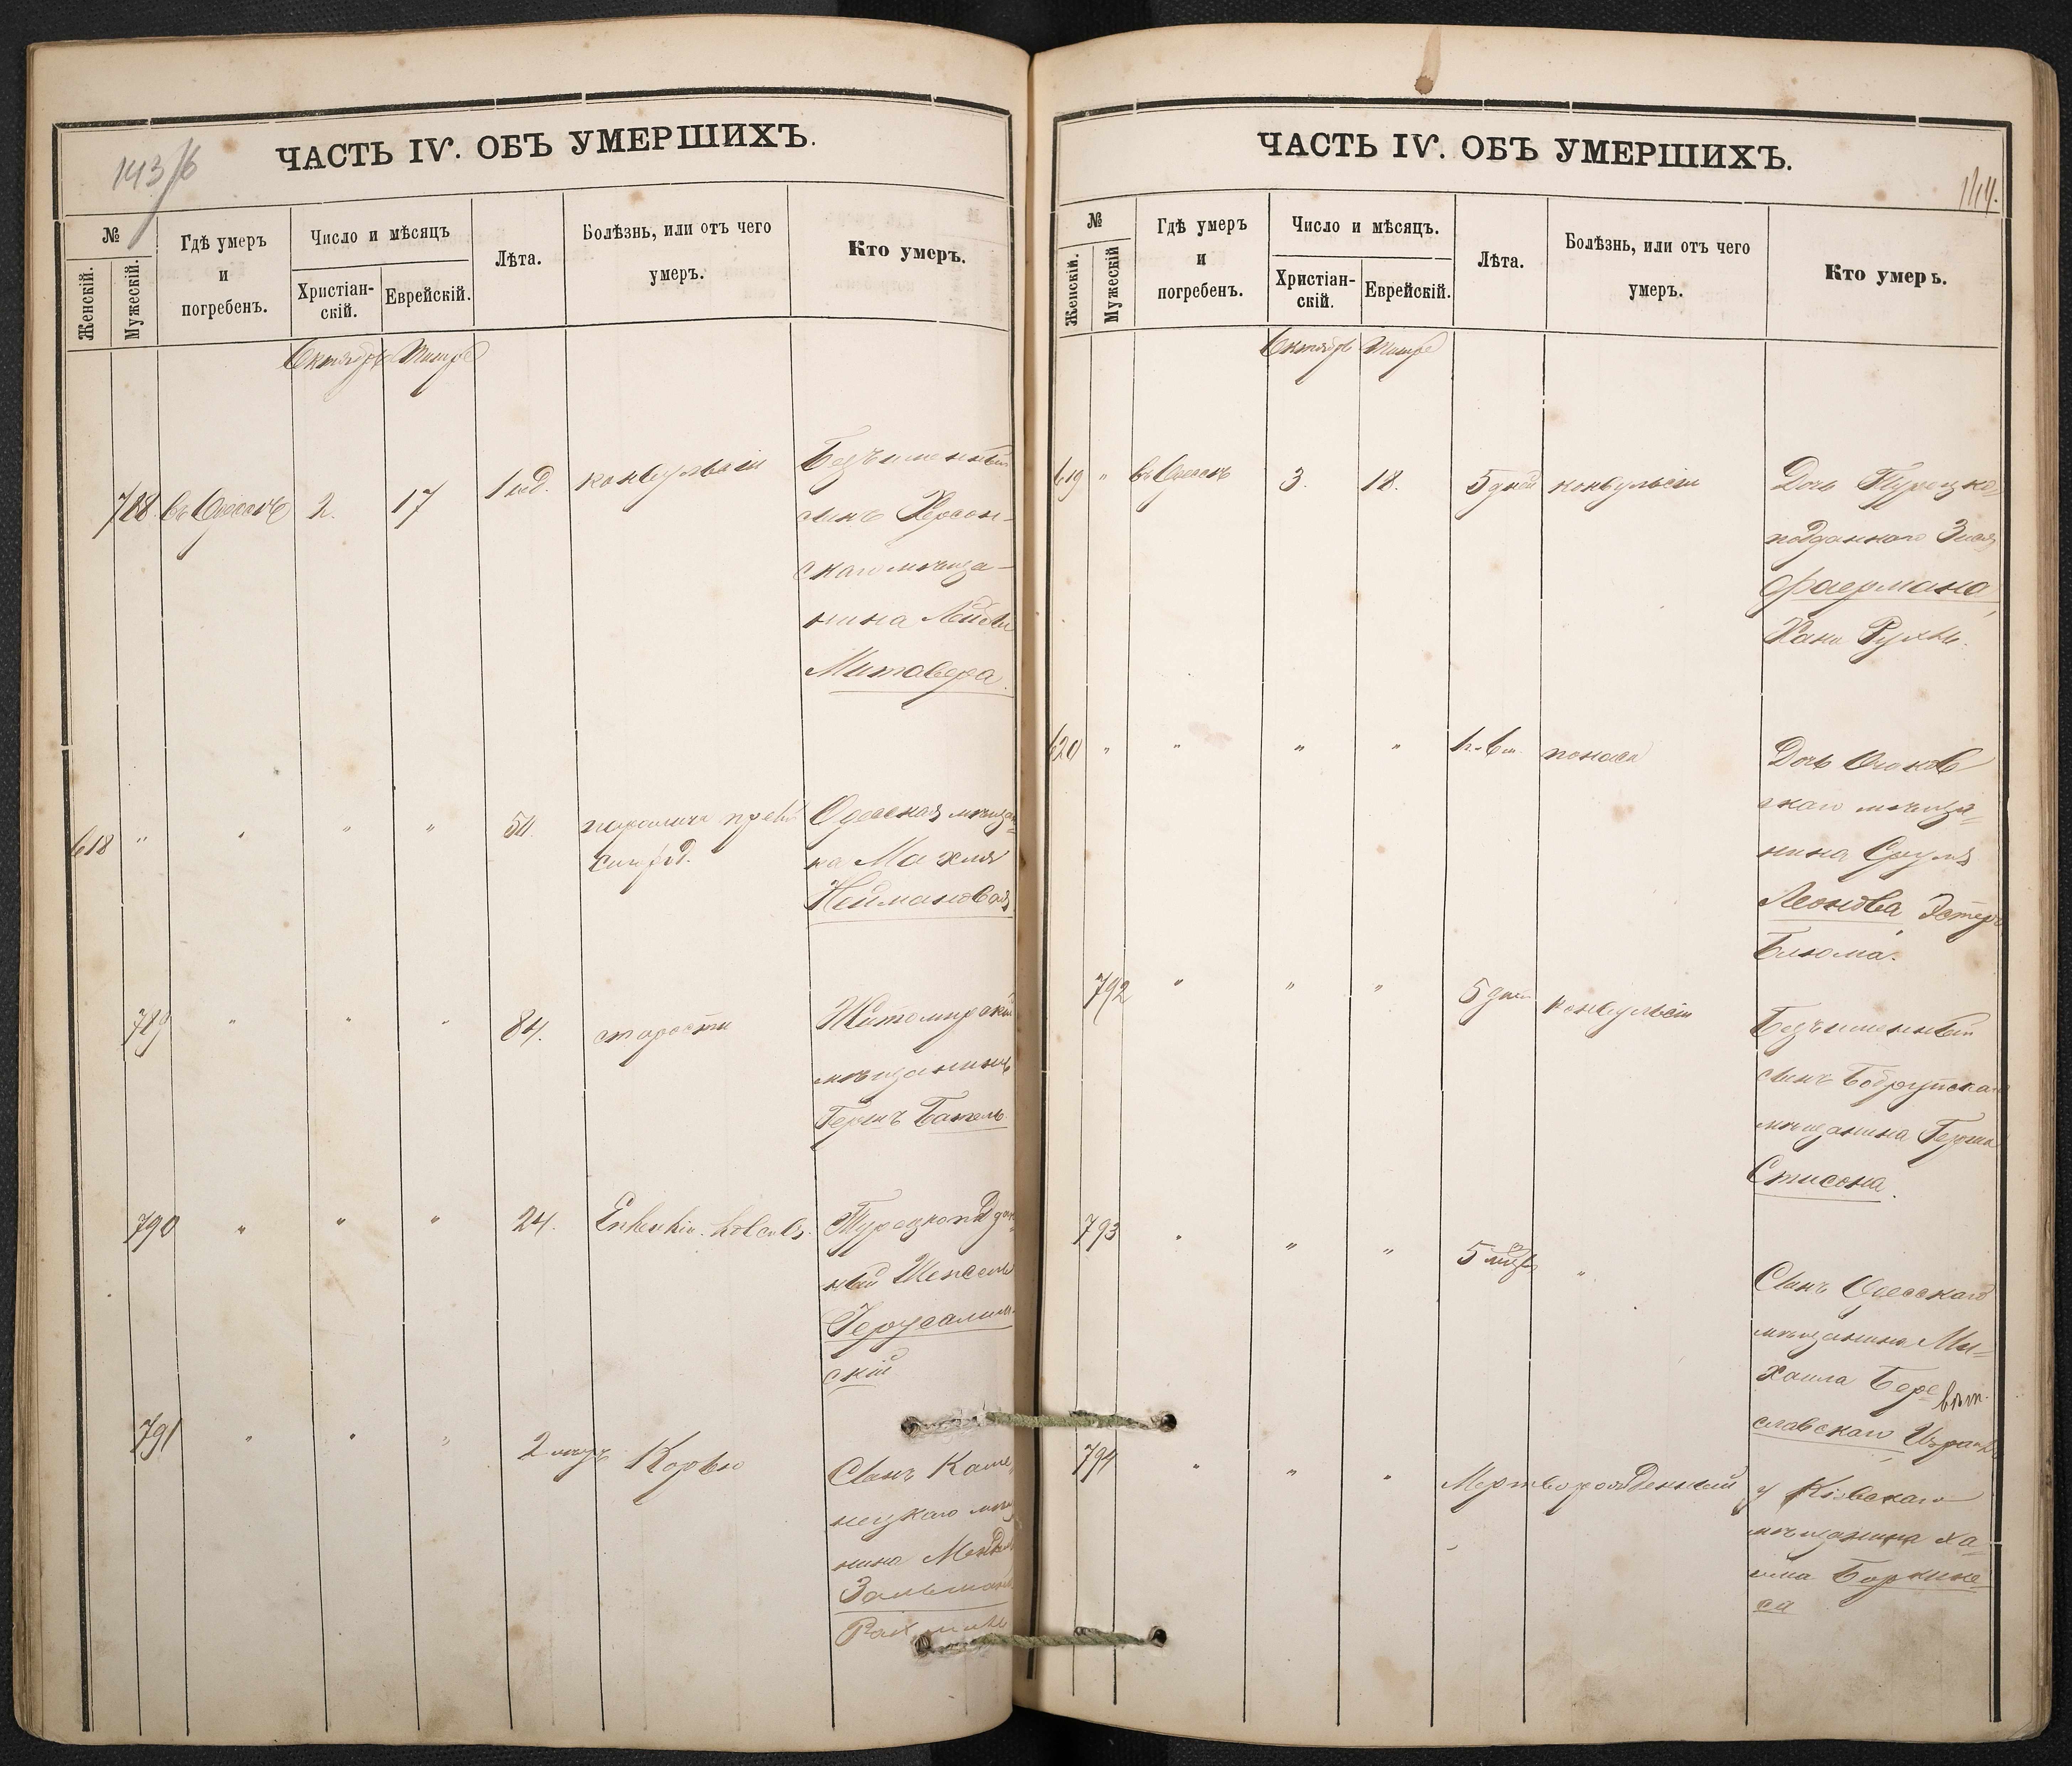 143/6
ЧАСТЬ IV. ОБЪ УМЕРШИХЪ.
№
Женскій.
Мужескій.
Гдѣ умеръ
и
погребенъ.
Число и мѣсяцъ
Христіан-
скій.
Еврейскій.
Лѣта.
Болѣзнь, или отъ чего
умеръ.
Кто умеръ.
Октябрь Тишре
788 въ Одессѣ 2. 17 конвульсіи Безъименный
сынъ Херсон-
скаго мѣща-
нина Лейбы
Митавера.
618 " " " " 50. Одесская мѣщан-
ка Махля
Неймановая
789 " " " 84. старости Житомирскій
мѣщанинъ
Гершъ Бапель
790 " " " 24. Турецкоподдан-
ный Шепсель
Іерусалим-
скій
791 " " " 2 мѣс. Корью Сынъ Каме-
нецкаго мѣщ
нина Мендель
Зальцман
ЧАСТЬ IV. ОБЪ УМЕРШИХЪ.
144.
№
Женскій.
Мужескій
Гдѣ умеръ
и
погребенъ.
Число и мѣсяцъ.
Христіан-
скій.
Еврейскій.
Лѣта.
Болѣзнь, или отъ чего
умеръ.
Кто умеръ.
Октябрь Тишре
619 " въ Одессѣ 3. 18. 5 дней конвульсіи Дочь Турецко-
подданного Зися
Фаермана,
Хана Рухль.
620 " " " " поноса Дочь Очаков
скаго мѣща-
нина Сруля
Леонова, Эстеръ
Блюма.
792 " " " 5 дней конвульсіи Безъименный
сынъ Бобруйскаго
мѣщанина Герша
Стисона.
793 " " " 5 мѣс. " Сынъ Одесскаго
мѣщанина Ми-
хаила Бере
славскаго, Израиль
794 " " " Мертворожденный у Кіевскаго
мѣщанина Ха-
има Боркине-
са